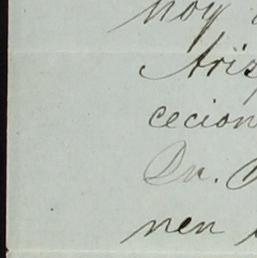 hoy
Aris
cecion
Dn.
nen